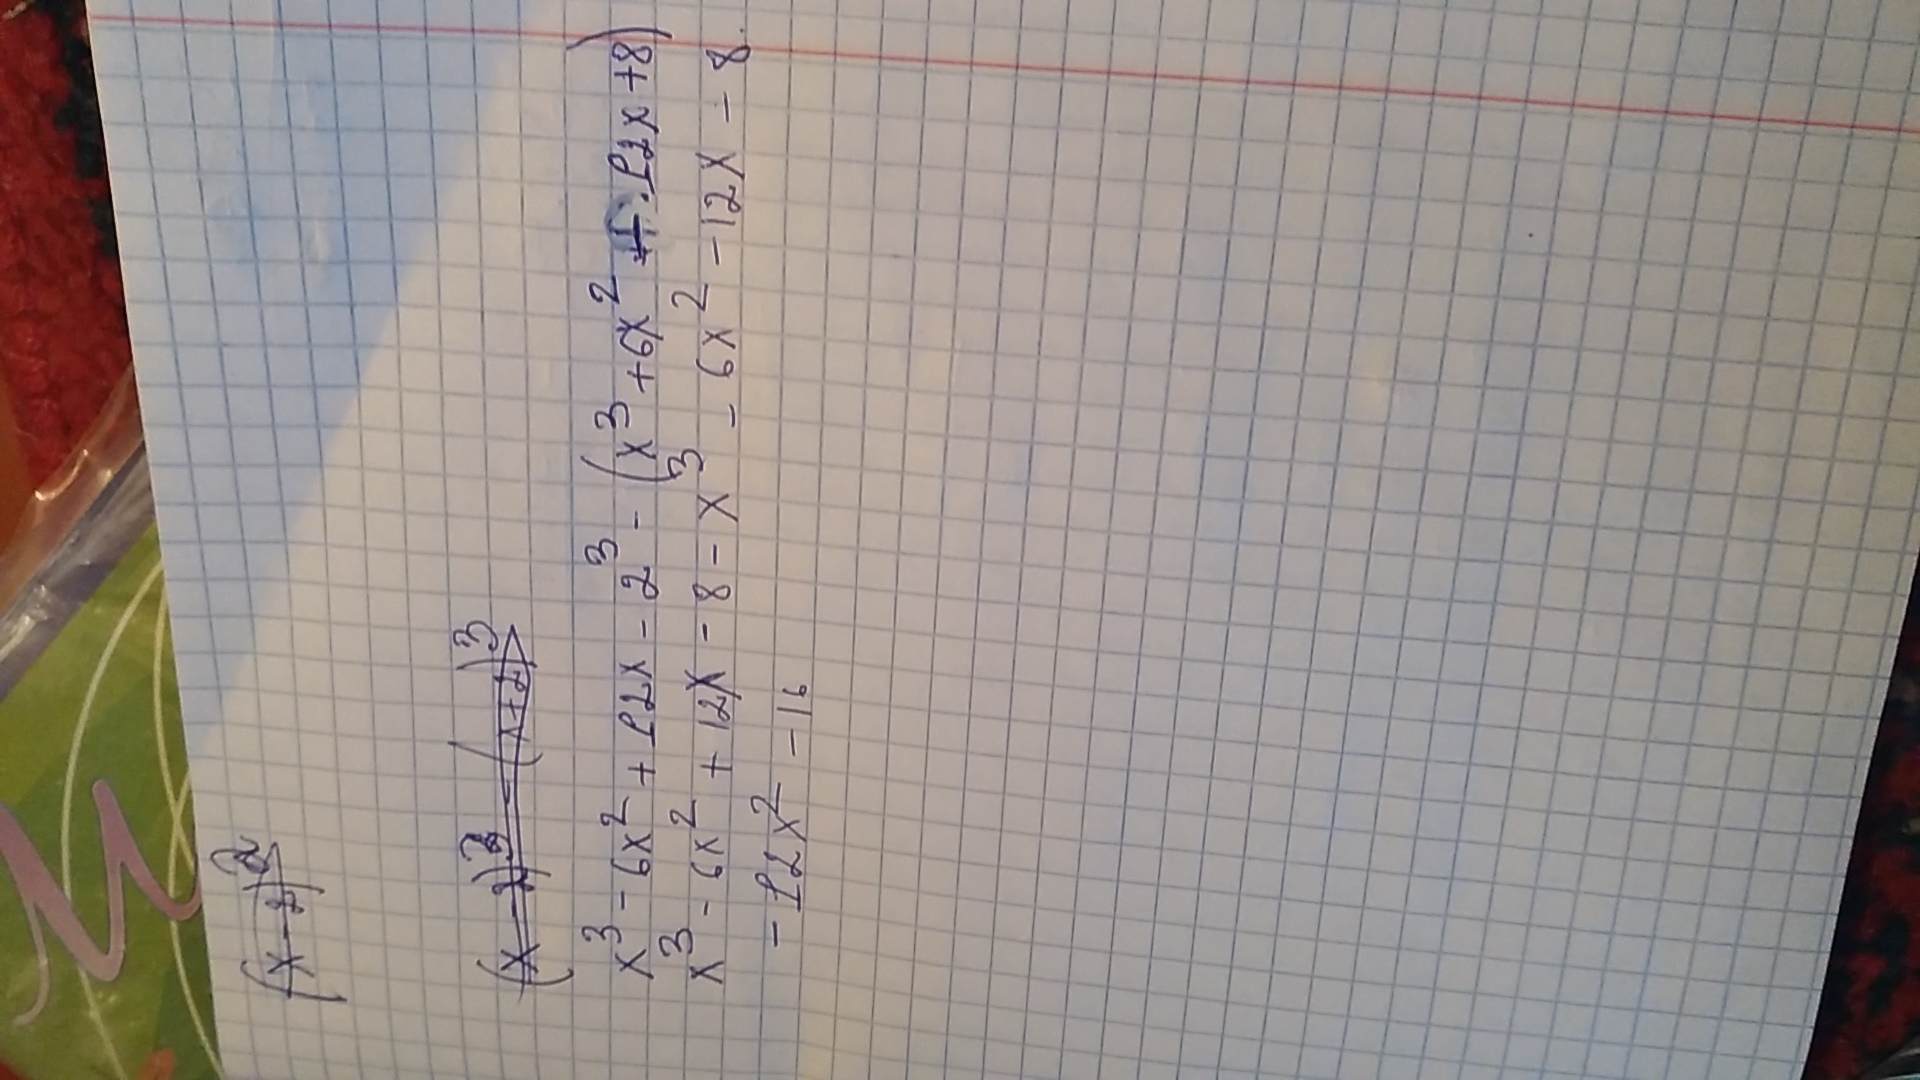 (x-2)²
(x-2)³ - (x+2)³
x³ - 6x² + 12x - 2³ - (x³ + 6x² + 12x + 8)
x³ - 6x² + 12x - 8 - x³ - 6x² - 12x - 8
- 12x² - 16